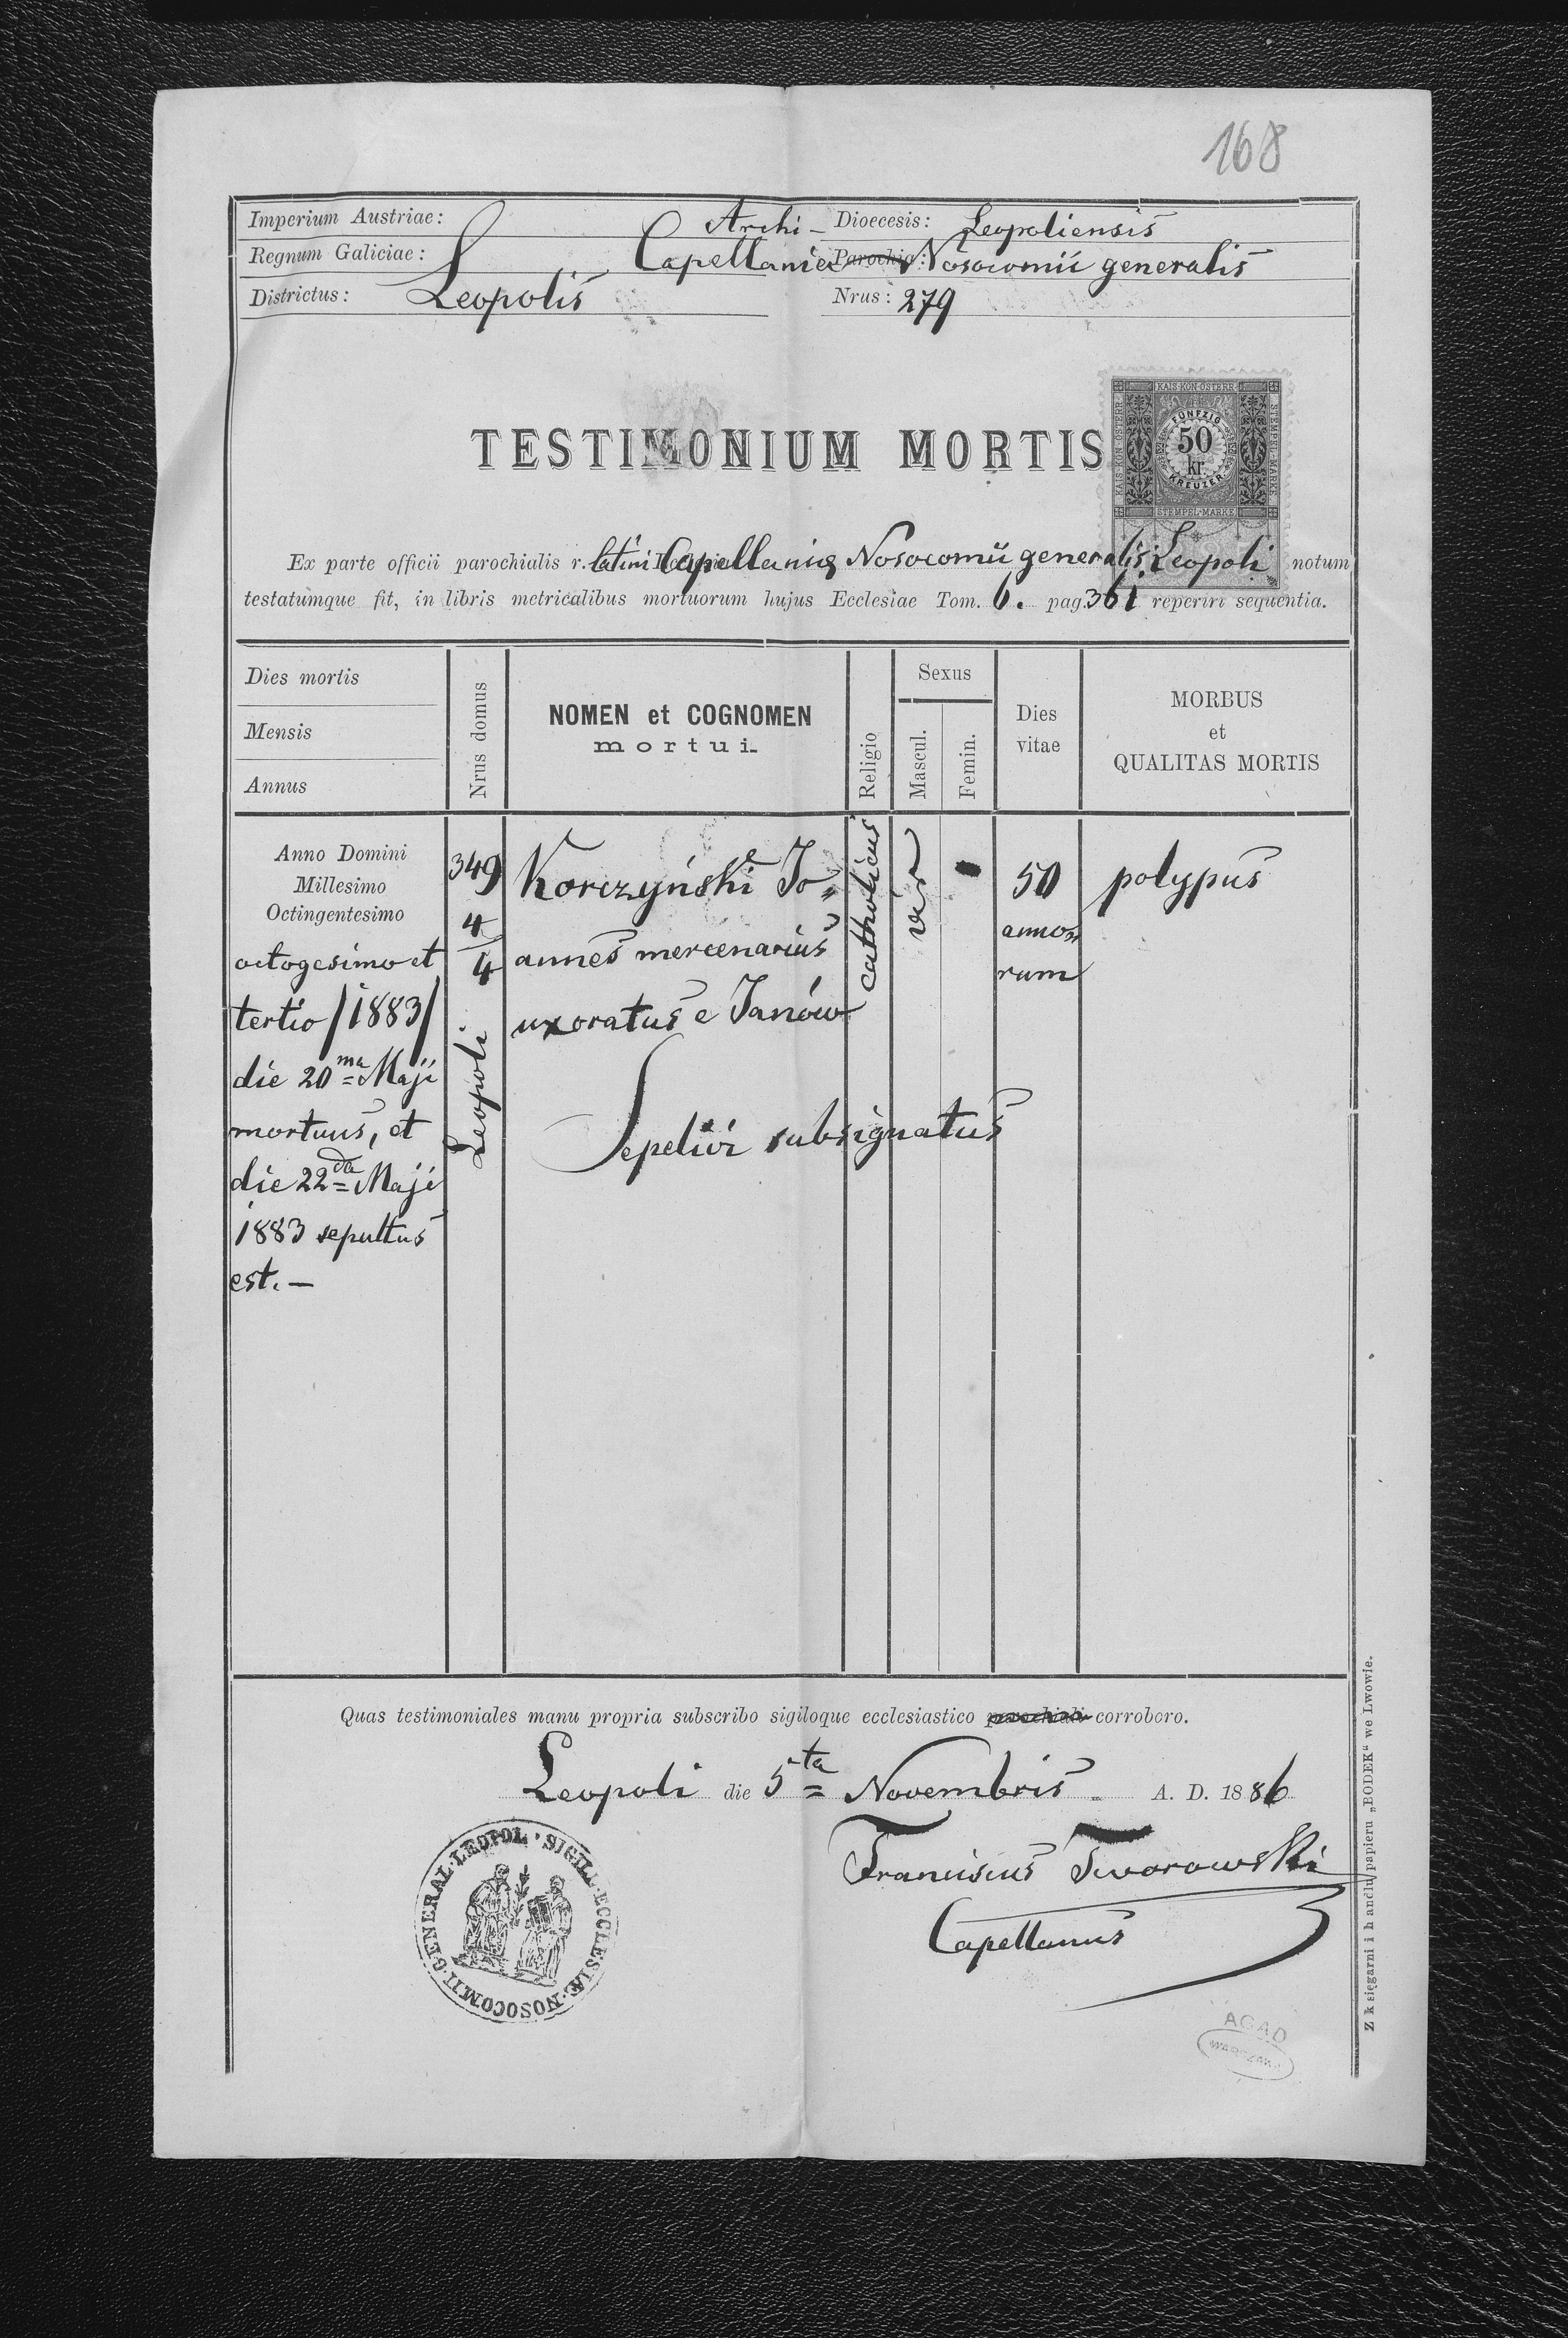 168
Imperium Austriae: Archi- Dioecesis: Leopoliensis
Regnum Galiciae: Capellania Parochia: Nosocomii generalis
Districtus: Leopolis Nrus: 279
KAIS·KÖN·ÖSTERR·
KAIS·KÖN·ÖSTERR·
STEMPEL-MARKE
FÜNFZIG
50
kr.
KREUZER
STEMPEL-MARKE
TESTIMONIUM MORTIS
Ex parte officii parochialis r. latini Capellaniae Nosocomii generalis Leopoli notum
testatumque fit, in libris metricalibus mortuorum hujus Ecclesiae Tom. 6. pag. 361 reperiri sequentia.
Dies mortis
Mensis
Annus
Nrus domus
NOMEN et COGNOMEN
mortui.
Religio
Sexus
Mascul.
Femin.
Dies
vitae
MORBUS
et
QUALITAS MORTIS
Anno Domini
Millesimo
Octingentesimo
octogesimo et
tertio /1883/
die 20ma Maji
mortuus, et
die 22da Maji
1883 sepultus
est. —
349
4/4
Leopoli
Korczyński Jo=
annes mercenarius
uxoratus e Janów
Sepelivi subsignatus
catholicus
vir
50
anno=
rum
polypus
Quas testimoniales manu propria subscribo sigiloque ecclesiastico parochiali corroboro.
Leopoli die 5ta Novembris A. D. 1886
Franciscus Tworowski
Capellanus
SIGILL·ECCLESIÆ·NOSOCOMII·GENERAL·LEOPOL·
AGAD
WARSZAWA
Z księgarni i handlu papieru „BODEK“ we Lwowie.